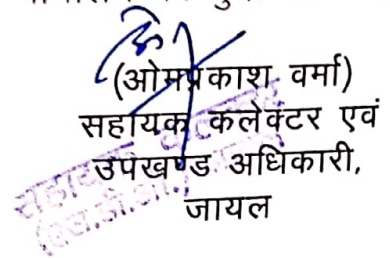 (ओमप्रकाश वर्मा)
सहायक कलेक्टर एवं
उपखण्ड अधिकारी,
जायल